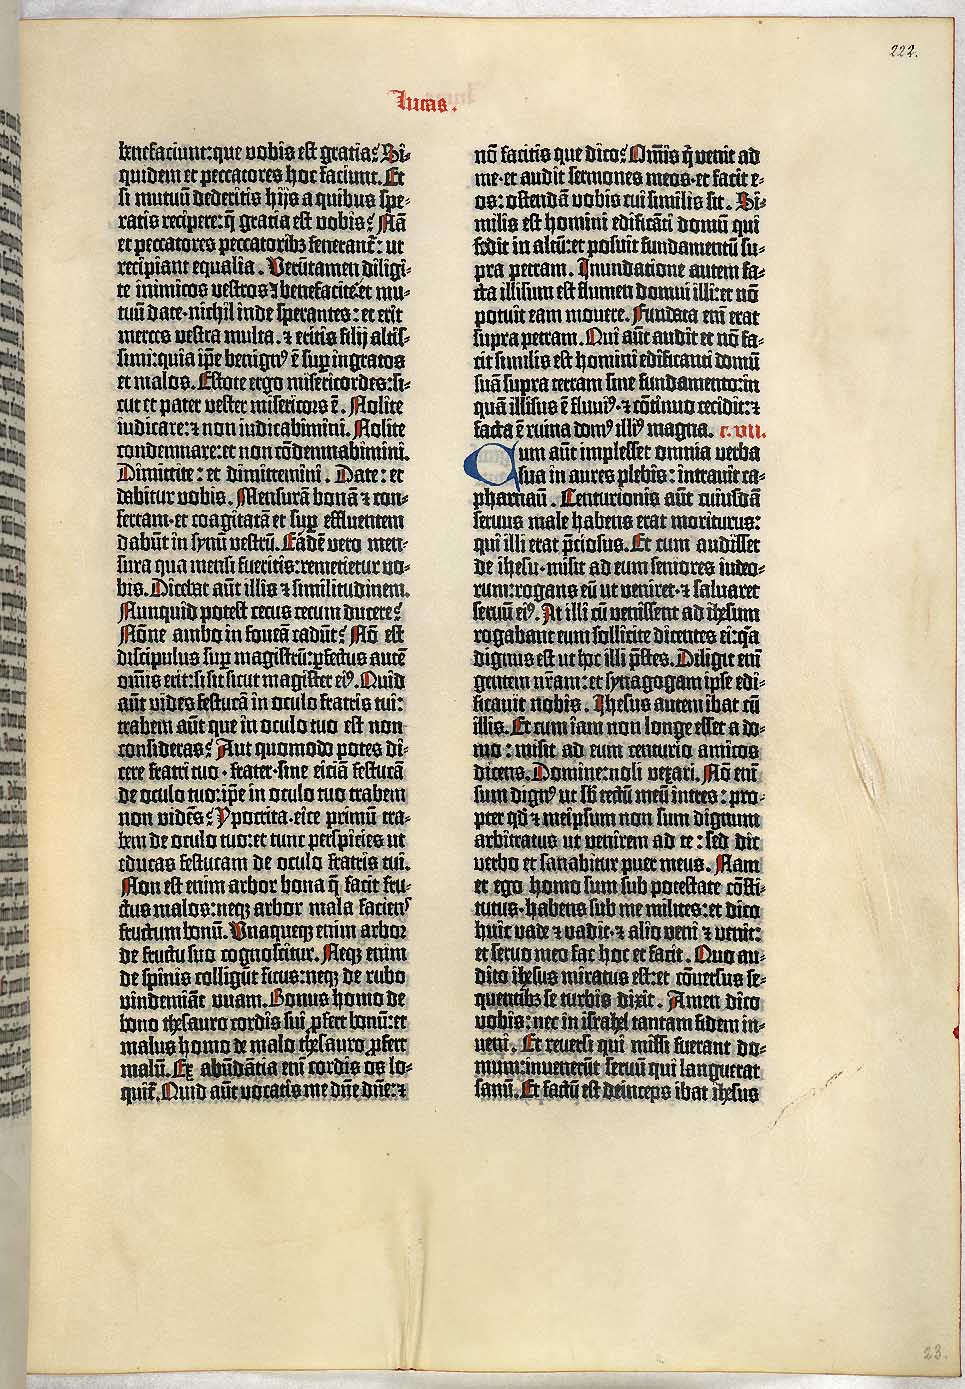 222.
lucas.
benefaciunt: que vobis est gratia? Si-
quidem et peccatores hoc faciunt. Et
si mutuū dederitis hijs a quibus spe-
ratis recipere: q̄ gratia est vobis? Nā
et peccatores peccatoribꝫ fenerant̄: ut
recipiant equalia. Verūtamen diligi-
te inimicos vestros ⁊ benefacite: et mu-
tuū date·nichil inde sperantes: et erit
merces vestra multa·⁊ eritis filij altis-
simi: quia ip̄e benignꝰ ē sup̄ ingratos
et malos. Estote ergo misericordes: si-
cut et pater vester misericors ē. Nolite
iudicare: ⁊ non iudicabimini. Nolite
condemnare: et non cōdemnabimini.
Dimittite: et dimittemini. Date: et
dabitur vobis. Mensurā bonā ⁊ con-
fertam·et coagitatā et sup̄ effluentem
dabūt in synū vestrū. Eādē vero men-
sura qua mensi fueritis: remetietur vo-
bis. Dicebat aūt illis ⁊ similitudinem.
Nunquid potest cecus cecum ducere?
Nōne ambo in foueā cadūt? Nō est
discipulus sup̄ magistrū: ꝑfectus autē
om̄is erit: si sit sicut magister eiꝰ. Quid
aūt vides festucā in oculo fratris tui:
trabem aūt que in oculo tuo est non
consideras? Aut quomodo potes di-
cere fratri tuo·frater·sine eiciā festucā
de oculo tuo: ip̄e in oculo tuo trabem
non vidēs? Ypocrita·eice primū tra-
bem de oculo tuo: et tunc perspicies ut
educas festucam de oculo fratris tui.
Non est enim arbor bona q̄ facit fru-
ctus malos: neqꝫ arbor mala faciens
fructum bonū. Vnaqueqꝫ enim arbor
de fructu suo cognoscitur. Neqꝫ enim
de spinis colligūt ficus: neqꝫ de rubo
vindemiāt vuam. Bonus homo de
bono thesauro cordis sui ꝓfert bonū: et
malus homo de malo thesauro ꝓfert
malū. Ex abūdātia enī cordis os lo-
quit̄. Quid aūt vocatis me dn̄e dn̄e: ⁊
nō facitis que dico? Om̄is q̄ venit ad
me·et audit sermones meos·et facit e-
os: ostendā vobis cui similis sit. Si-
milis est homini edificāti domū qui
fodit in altū: et posuit fundamentū su-
pra petram. Inundatione autem fa-
cta illisum est flumen domui illi: et nō
potuit eam mouere. Fundata enī erat
supra petram. Qui aūt audit et nō fa-
cit similis est homini edificanti domū
suā supra terram sine fundamento: in
quā illisus ē fluuiꝰ·⁊ cōtinuo cecidit: ⁊
facta ē ruina domꝰ illiꝰ magna. c. vii.
Cum aūt implesset omnia verba
sua in aures plebis: intrauit ca-
pharnaū. Centurionis aūt cuiusdā
seruus male habens erat moriturus:
qui illi erat p̄ciosus. Et cum audisset
de ihesu·misit ad eum seniores iudeo-
rum: rogans eū ut veniret·⁊ saluaret
seruū eiꝰ. At illi cū venissent ad ihesum
rogabant eum sollicite dicentes ei: q̄a
dignus est ut hoc illi p̄stes. Diligit enī
gentem nr̄am: et synagogam ipse edi-
ficauit nobis. Ihesus autem ibat cū
illis. Et cum iam non longe esset a do-
mo: misit ad eum centurio amicos
dicens. Domine: noli vexari. Nō enī
sum dignꝰ ut sb̄ tectū meū intres: pro-
pter qd̄ ⁊ meipsum non sum dignum
arbitratus ut venirem ad te: sed dic
verbo et sanabitur puer meus. Nam
et ego homo sum sub potestate cōsti-
tutus·habens sub me milites: et dico
huic vade ⁊ vadit·⁊ alio veni ⁊ venit:
et seruo meo fac hoc et facit. Quo au-
dito ihesus miratus est: et cōuersus se-
quentibꝫ se turbis dixit. Amen dico
vobis: nec in israhel tantam fidem in-
ueni. Et reuersi qui missi fuerant do-
mum: inuenerūt seruū qui languerat
sanū. Et factū est deinceps ibat ihesus
23.